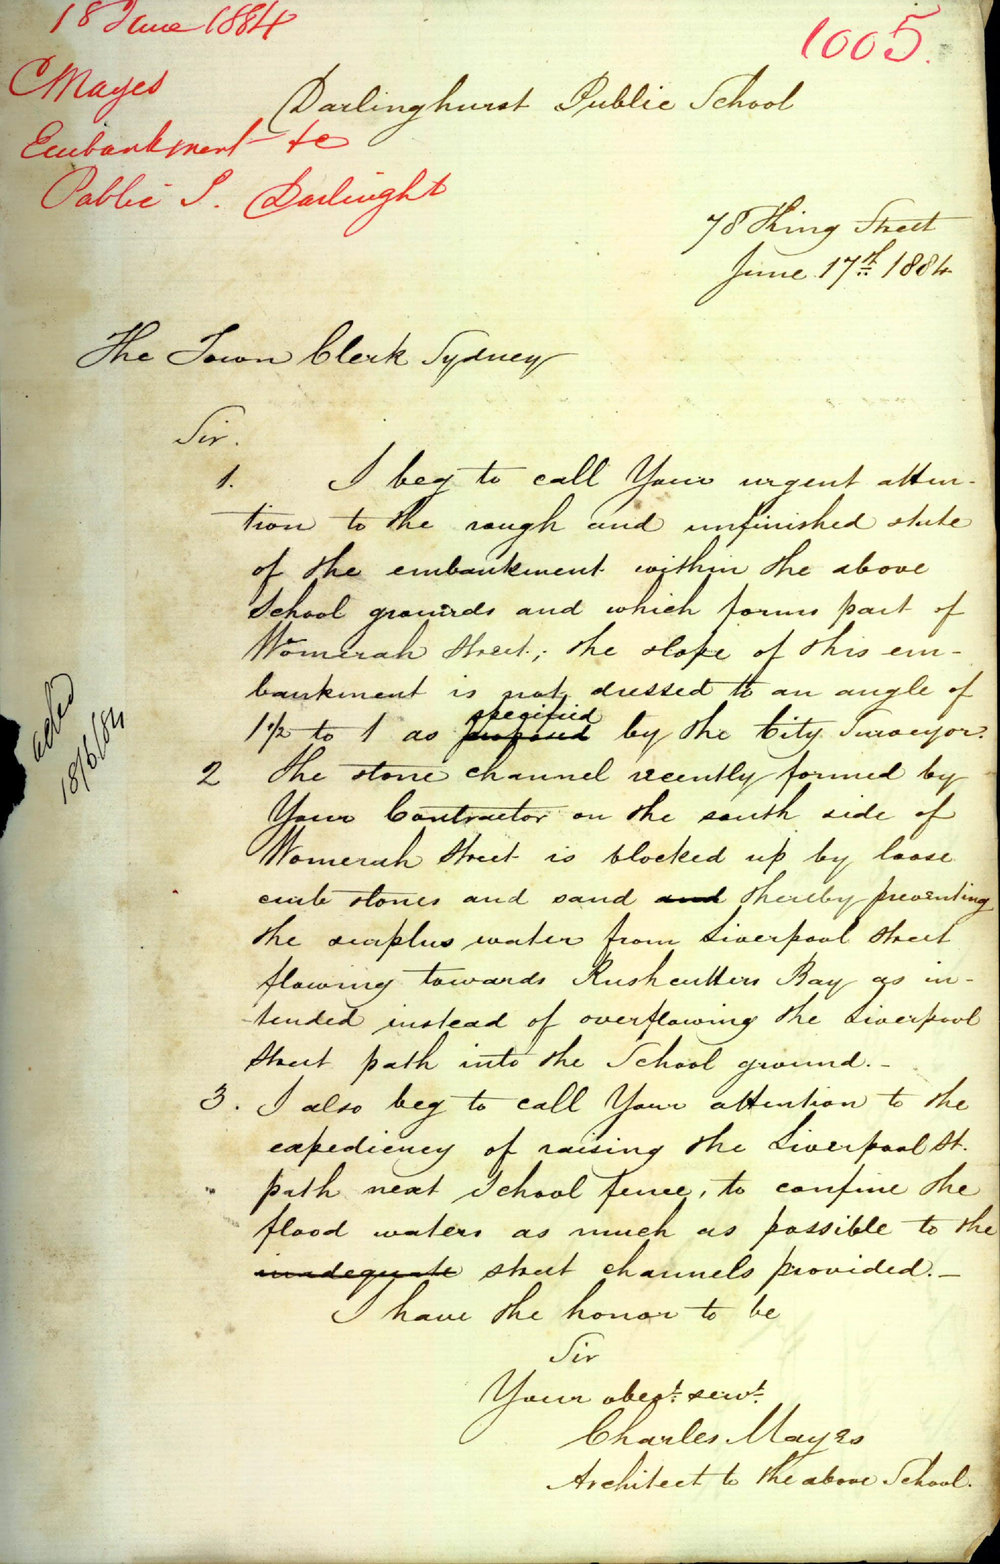 18 June 1884
1005.
C Mayes
Embankment &c
Public S. Darlinght
Darlinghurst Public School
78 King Street
June 17th 1884
The Town Clerk Sydney
Sir.
1. I beg to call Your urgent atten-
tion to the rough and unfinished state
of the embankment within the above
School grounds and which forms part of
Womerah Street; the slope of this em-
bankment is not dressed to an angle of
specified
1 1/2 to 1 as proposed by the City Surveyor.
2 the stone channel recently formed by
Your Contractor on the south side of
Womerah Street is blocked up by loose
curb stones and sand and thereby preventing
the surplus water from Liverpool Street
flowing towards Rushcutters Bay as in-
tended instead of overflowing the Liverpool
Street path into the School ground.-
3. I also beg to call Your attention to the
expediency of raising the Liverpool St.
path next School fence, to confine the
flood waters as much as possible to the
inadequate street channels provided.-
I have the honor to be
Sir
Your obedt. servt.
Charles Mayes
Architect to the above School.
ackd
18/6/84